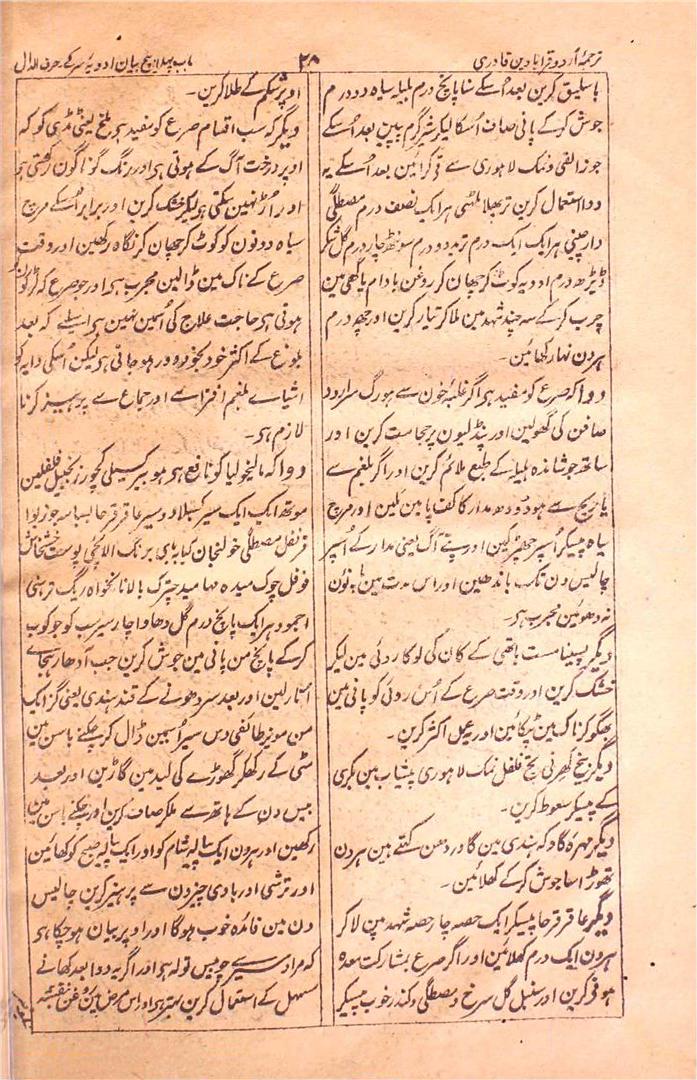 ترجمۂ اُردو قرابادین قادری
۲۸
باب پہلا بیچ بیان ادویہ سر کے حرف الدال
باسلیق کرین بعد اُسکے سنا پانچ درم ہلیلہ سیاہ دو درم
جوش کرکے پانی صاف اُسکا لیکر شیر گرم پیین بعد اُسکے
جوز القی و نمک لاہوری سے قی کرائین بعد اُسکے یہ
دوا استعمال کرین تربھلا ملٹھی ہر ایک نصف درم مصطگی
دارچینی ہر ایک ایک درم تربد دو درم سونٹھ چار درم گل شکر
ڈیڑھ درم ادویہ کوٹ کر چھان کر روغن بادام یا گھی مین
چرب کرکے سہ چند شہد مین ملا کر تیار کرین اور چھ درم
ہر دن نہار کھائین۔
دوا کہ صرع کو مفید ہی اگر غلبۂ خون سے ہو رگ سرارو د
صافن کی کھولین اور پنڈلیون پر حجامت کرین اور
ساتھ جوشاندہ ہلیلہ کے طبع ملائم کرین اور اگر بلغم سے
یا ریح سے ہو دودھ مدار کا کف پا مین ملین اور مرچ
سیاہ پیسکر اُسپر چھڑکین اور پتے آگ یعنی مدار کے اُسپر
چالیس دن تک باندھین اور اس مدت مین پانون
نہ دھوئین مجرب ہو۔
دیگر پسینا مست ہاتھی کے کان کی لو کا روئی مین لیکر
خشک کرین اور وقت صرع کے اُس روئی کو پانی مین
بھگو کر ناک مین ٹپکائین اور یہ عمل اکثر کرین۔
دیگر بیخ کھرنی بچ فلفل نمک لاہوری پیشاب مین بکری
کے پیسکر سعوط کرین۔
دیگر مہرہ گاؤ کہ ہندی مین گاو رودھن کہتے ہین ہر دن
تھوڑا سا جوش کرکے کھلائین۔
دیگر عاقرقرحا پیسکر ایک حصہ چار حصہ شہد مین ملا کر
ہر دن ایک درم کھلائین اور اگر صرع بمشارکت معدہ
ہو قی کرین اور سنبل گل سرخ و مصطگی و کندر خوب پیسکر
اوپر شکم کے طلا کرین۔
دیگر کہ سب اقسام صرع کو مفید ہی ملخ یعنی ٹڈی کو کہ
اوپر درخت آگ کے ہوتی ہی اور رنگ گوناگون رکھتی ہی
اور اُڑ نہین سکتی ہی لیکر خشک کرین اور برابر اُسکے مرچ
سیاہ دونون کو کوٹ کر چھان کر نگاہ رکھین اور وقت
صرع کے ناک مین ڈالین مجرب ہی اور جو صرع کہ لڑکون کو
ہوتی ہی حاجت علاج کی اُسمین نہین ہی اسلیے کہ بعد
بلوغ کے اکثر خود بخود دور ہو جاتی ہی لیکن اُسکی دایہ کو
اشیاے بلغم افزا سے اور جماع سے پرہیز کرنا
لازم ہی۔
دوا کہ مالیخولیا کو نافع ہی مویز کسیلی کچور زنجبیل فلفلین
موتھ ایک ایک سیر کسیلا دو سیر عاقرقرحا بسباسہ جوزبوا
قرنفل مصطگی خولنجان کبابہ برنگ الائچی پوست خشخاش
فوفل چوک میدہ مہامید چترک بالا نانخواہ ریگ ترہنی
اجمود ہر ایک پانچ درم گل دھاوا چار سیر سب کو جوکوب
کرکے پانچ من پانی مین جوش کرین جب آدھا رہجاے
اُتار لین اور بعد سرد ہونے کے قند ہندی یعنی گڑ ایک
من مویز طائفی دس سیر اُسمین ڈال کر چکنے باسن مین
مٹی کے رکھکر گھوڑے کی لید مین گاڑین اور بعد
بیس دن کے ہاتھ سے ملکر صاف کرین اور چکنے باسن مین
رکھین اور ہر دن ایک پیالہ شام کو اور ایک پیالہ صبح کو کھائین
اور ترشی اور بادی چیزون سے پرہیز کرین چالیس
دن مین فائدہ خوب ہوگا اور اوپر بیان ہو چکا ہی
کہ مراد سیر سے چوبیس تولہ ہی اور اگر یہ دوا بعد کھانے
مسہل کے استعمال کرین بہتر ہی اور اس مرض مین روغن بنفشہ